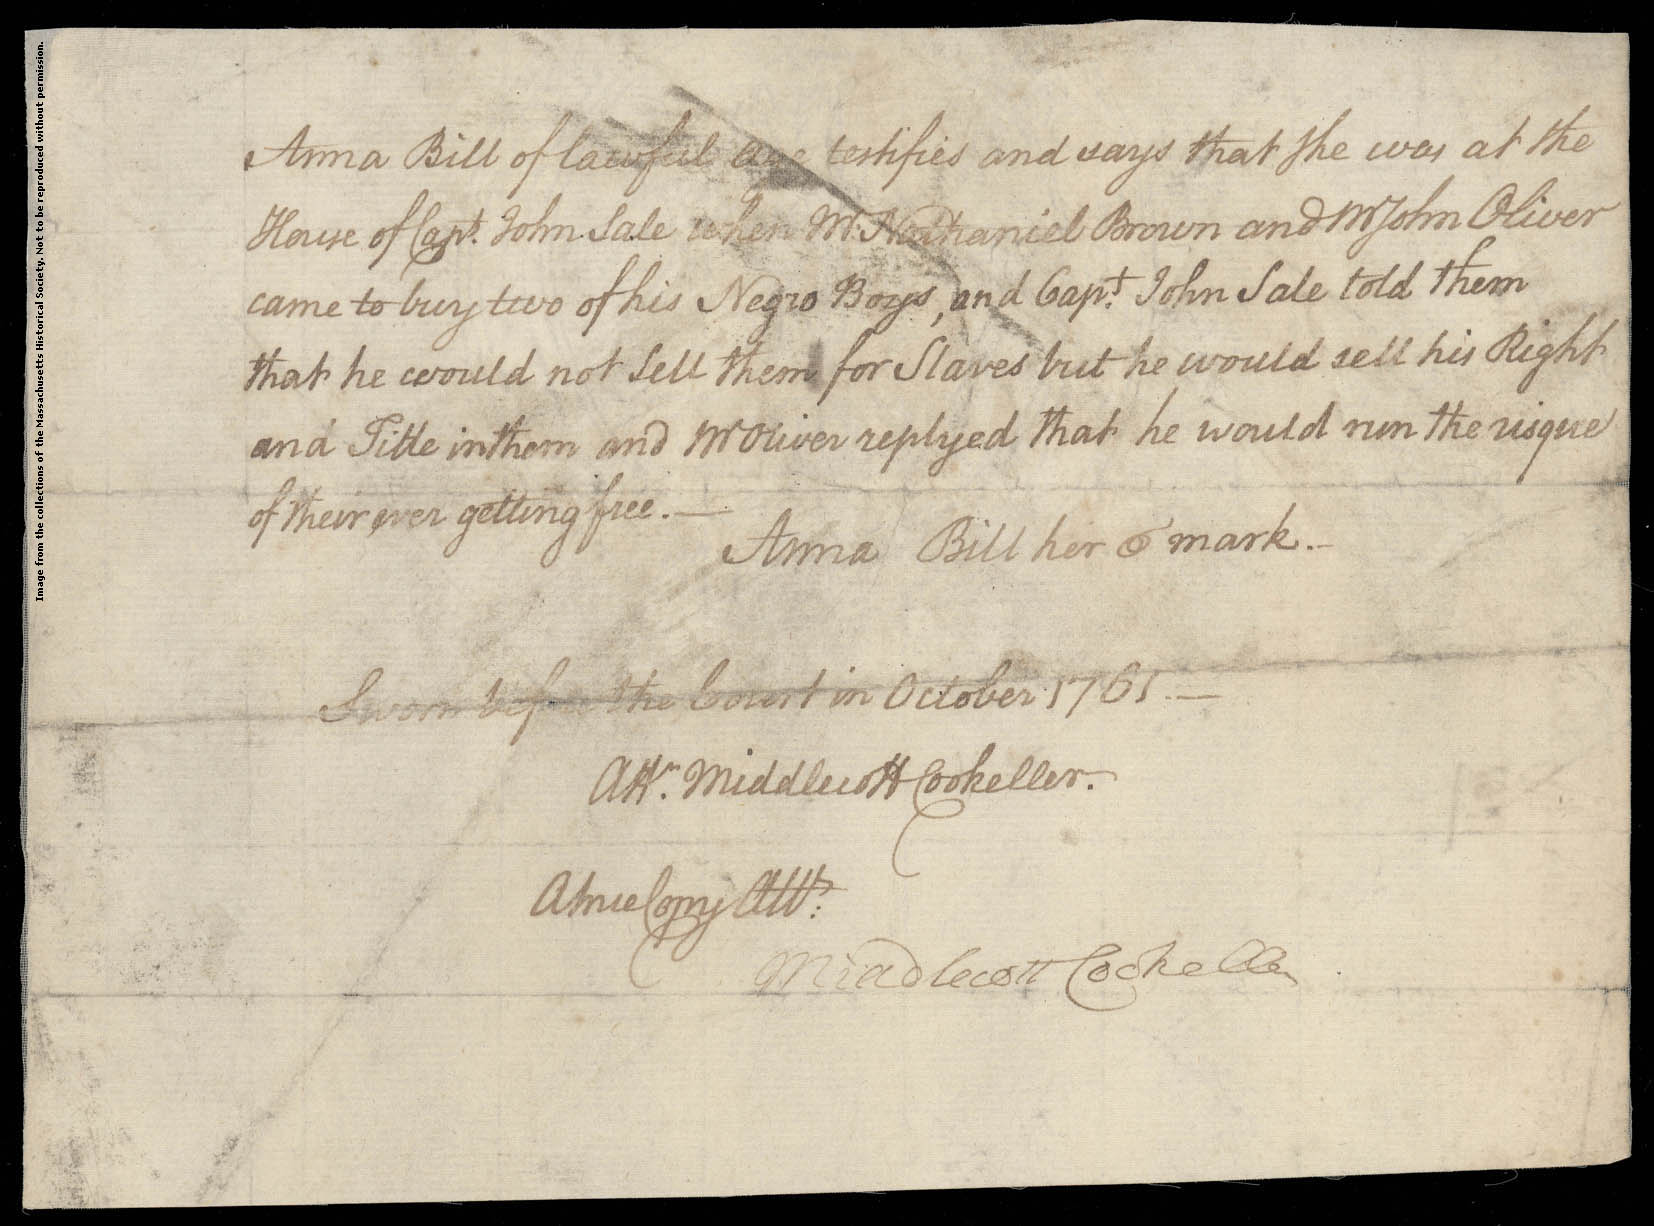 Image from the collections of the Massachusetts Historical Society. Not to be reproduced without permission.
Anna Bill of lawful Age testifies and says that she was at the
House of Capt. John Sale when Mr. Nathaniel Brown and Mr John Oliver
came to buy two of his Negro Boys, and Capt. John Sale told them
that he would not Sell them for Slaves but he would sell his Right
and Title in them and Mr Oliver replyed that he would run the risque
of their ever getting free. —
Anna Bill her o mark. –
Sworn before the Court in October 1761 —
Attr. Middlecott Cookeller.
A true Copy Attr:
Middlecott Cookeller